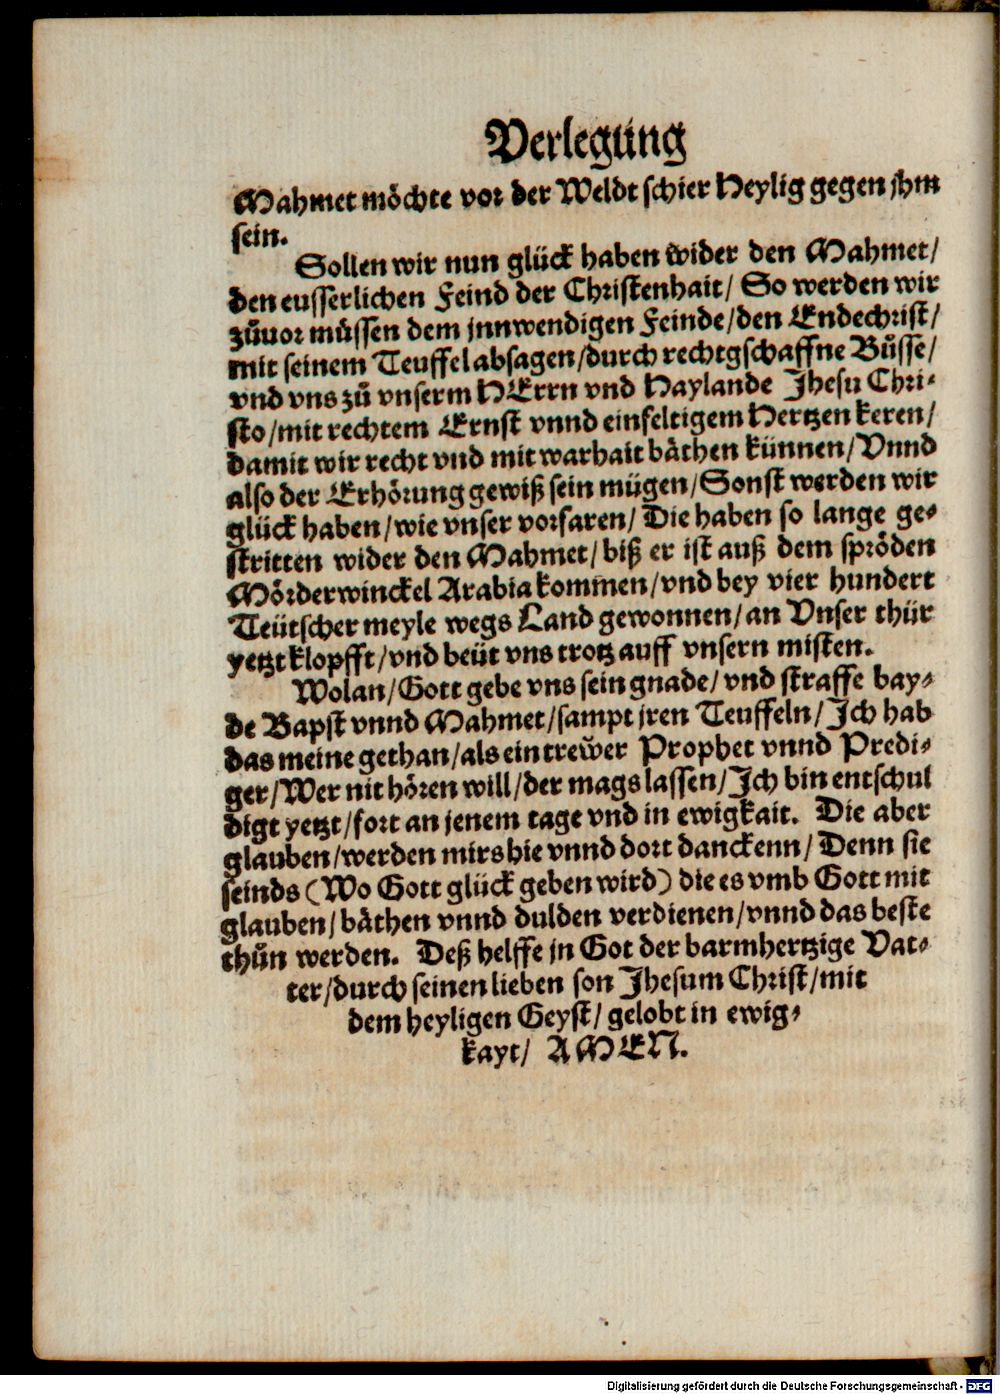 Verlegung
Mahmet möchte vor der Weldt schier Heylig gegen jhm
sein.
Sollen wir nun glück haben wider den Mahmet/
den eusserlichen Feind der Christenhait/ So werden wir
zůuor müssen dem jnnwendigen Feinde/den Endechrist/
mit seinem Teuffel absagen/durch rechtgschaffne Bůsse/
vnd vns zů vnserm HErrn vnd Haylande Jhesu Chri-
sto/mit rechtem Ernst vnnd einfeltigem Hertzen keren/
damit wir recht vnd mit warhait bäthen künnen/Vnnd
also der Erhörung gewiß sein mügen/Sonst werden wir
glück haben/wie vnser vorfaren/ Die haben so lange ge-
stritten wider den Mahmet/biß er ist auß dem spröden
Mörderwinckel Arabia kommen/vnd bey vier hundert
Teütscher meyle wegs Land gewonnen/an Vnser thür
yetzt klopfft/vnd beüt vns trotz auff vnsern misten.
Wolan/Gott gebe vns sein gnade/vnd straffe bay-
de Bapst vnnd Mahmet/sampt jren Teuffeln/Ich hab
das meine gethan/als ein trewer Prophet vnnd Predi-
ger/Wer nit hören will/der mags lassen/Ich bin entschul
digt yetzt/fort an jenem tage vnd in ewigkait. Die aber
glauben/werden mirs hie vnnd dort danckenn/Denn sie
seinds (Wo Gott glück geben wird) die es vmb Gott mit
glauben/bäthen vnnd dulden verdienen/vnnd das beste
thůn werden. Deß helffe jn Got der barmhertzige Vat-
ter/durch seinen lieben son Jhesum Christ/mit
dem heyligen Geyst/ gelobt in ewig-
kayt/ AMEN.
Digitalisierung gefördert durch die Deutsche Forschungsgemeinschaft - DFG